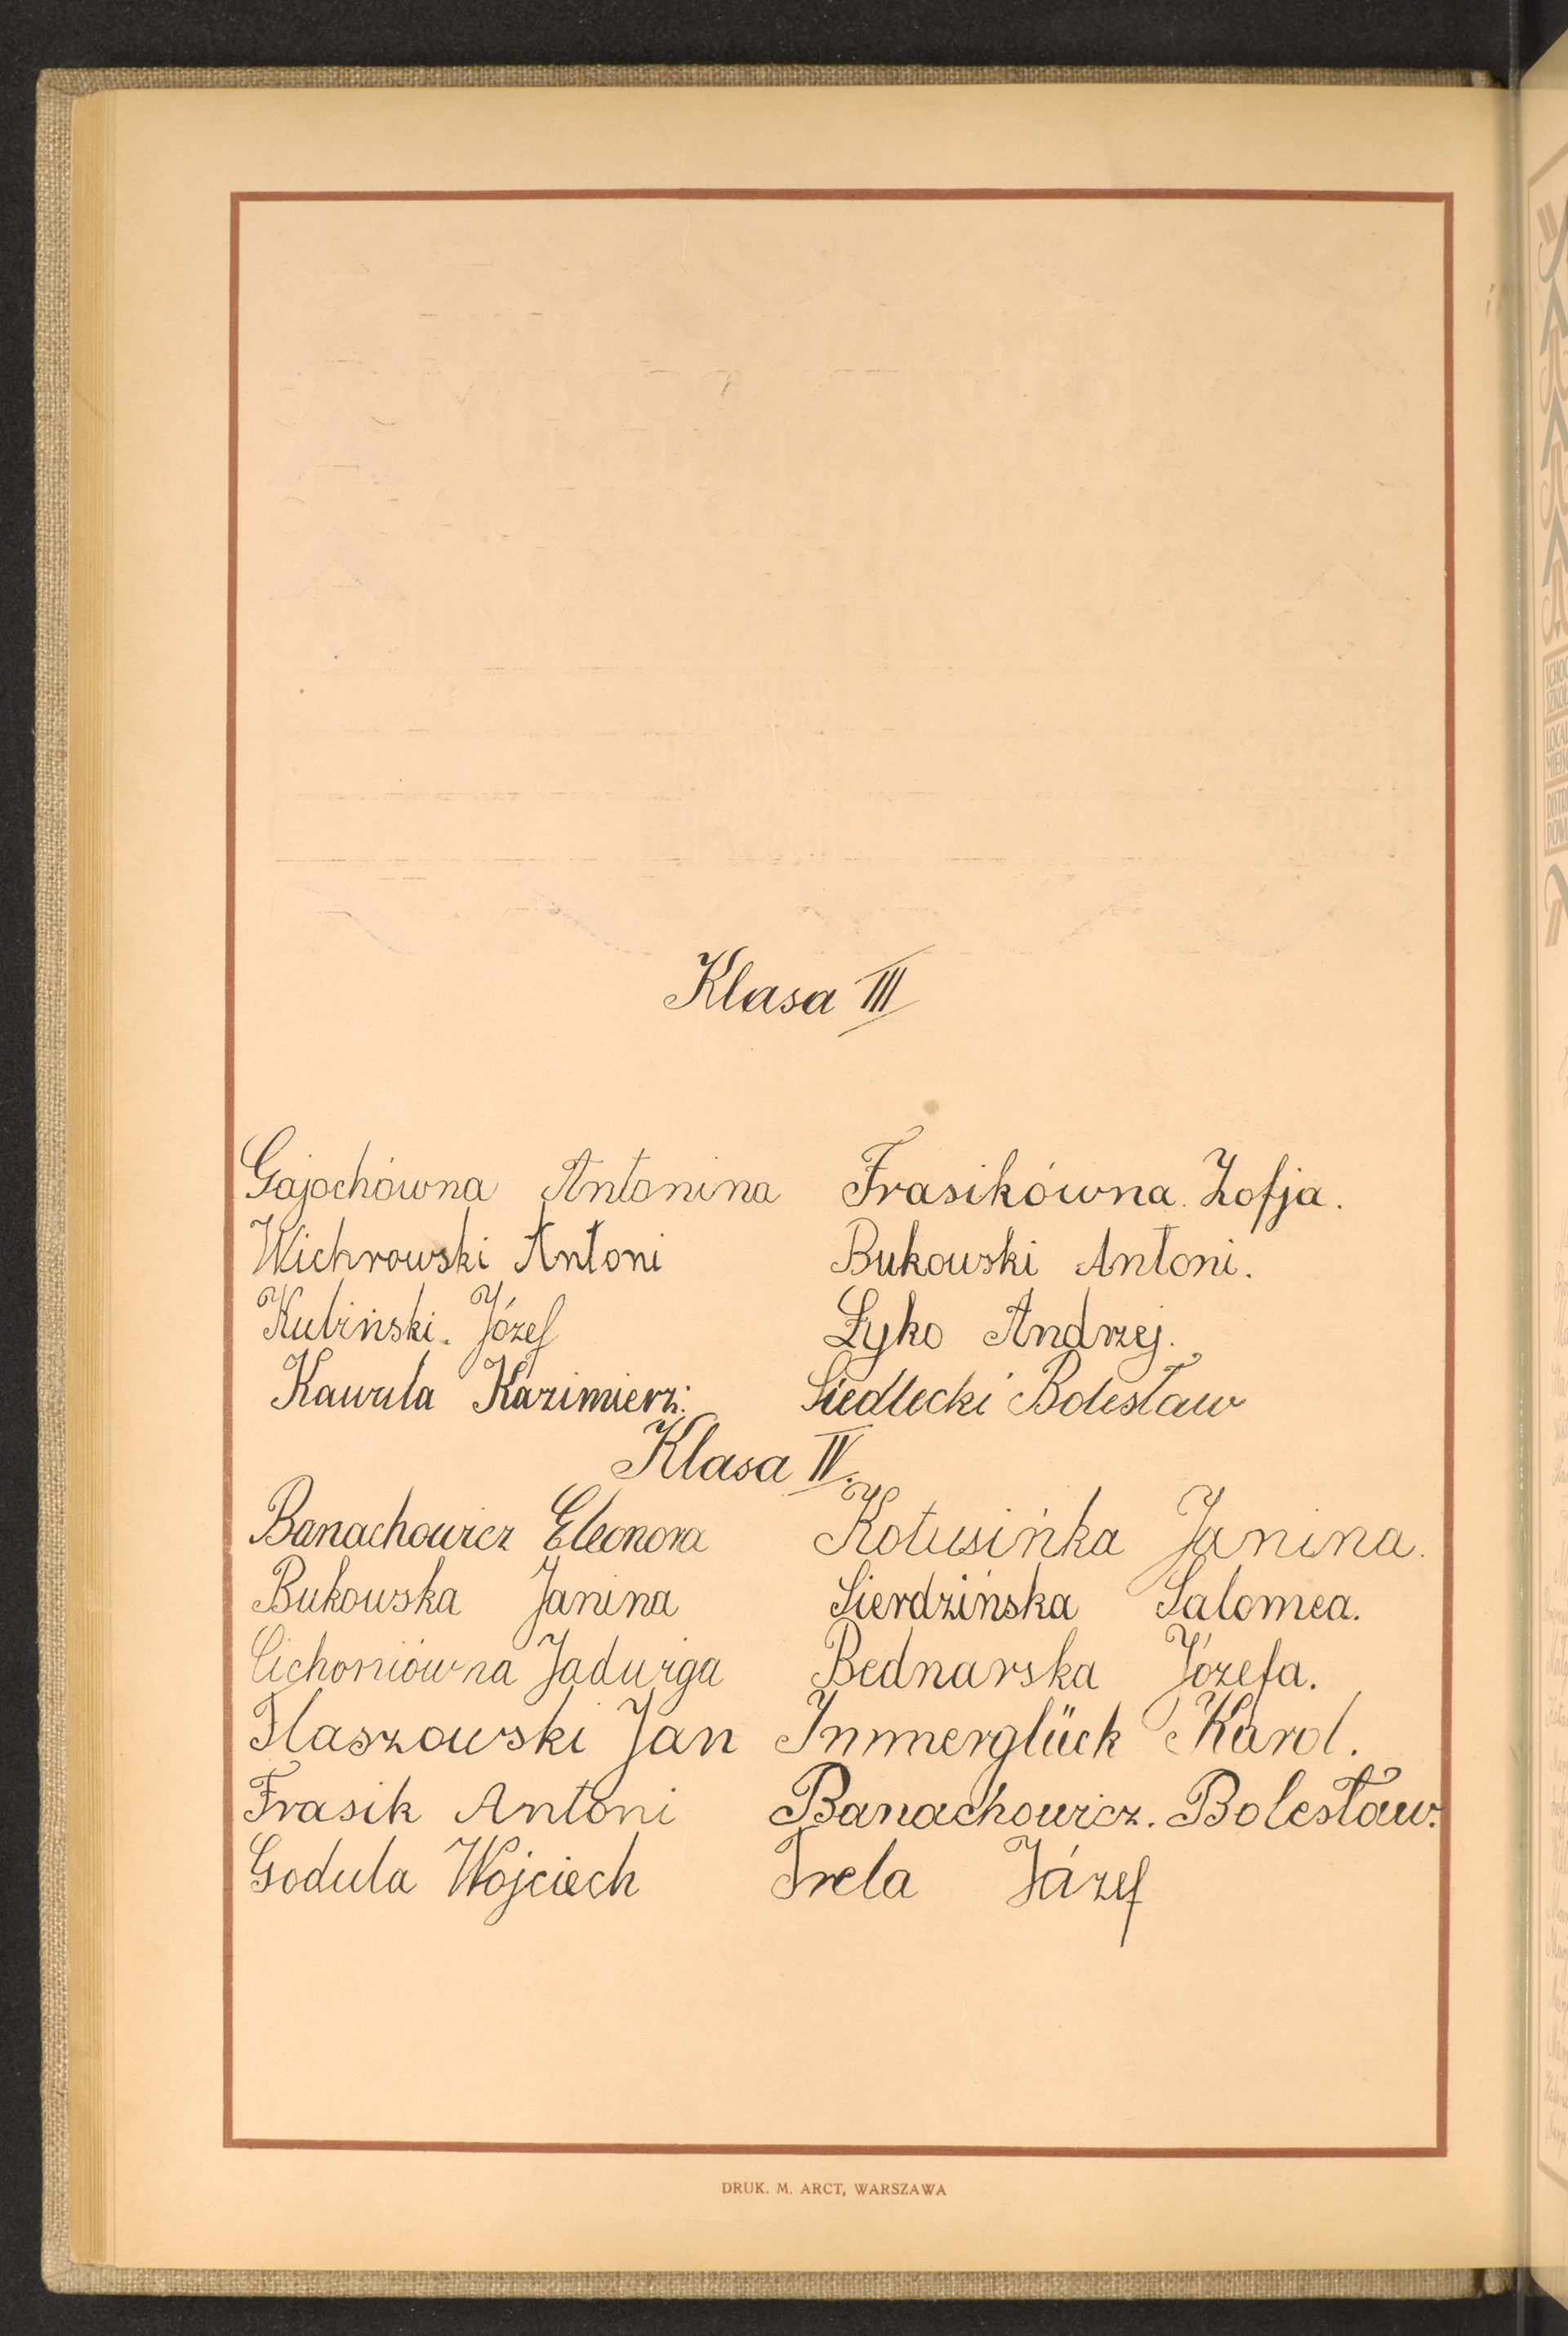 Klasa III
Gajochówna Antonina Frasikówna. Zofja.
Wichrowski Antoni Bukowski Antoni.
Kubiński. Józef Łyko Andrzej.
Kawula Kazimierz: Siedlecki Bolesław
Klasa IV.
Banachowicz Eleonora Kotusińka Janina.
Bukowska Janina Sierdzińska Salomea.
Cichoniówna Jadwiga Bednarska Józefa.
Flaszowski Jan Immerglück Karol.
Frasik Antoni Banachowicz. Bolesław.
Godula Wojciech Trela Józef
DRUK. M. ARCT, WARSZAWA